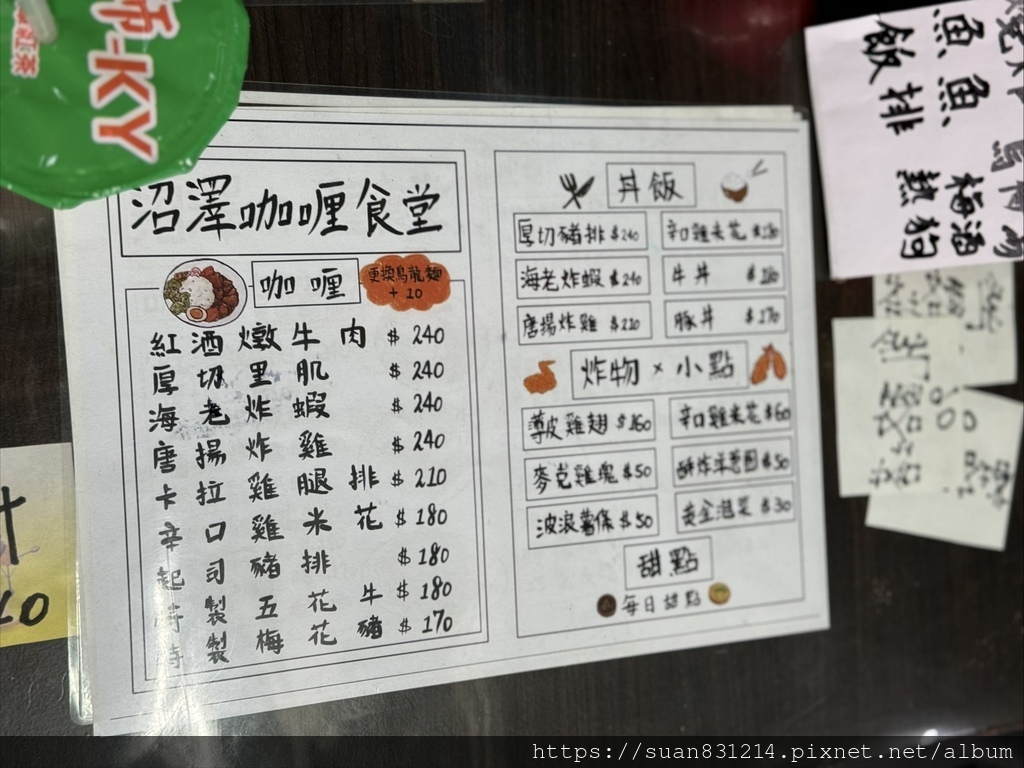 沼澤咖喱食堂
咖喱
更換烏龍麵
+10
紅酒燉牛肉 $240
厚切里肌 $240
海老炸蝦 $240
唐揚炸雞 $240
卡拉雞腿排 $210
辛口雞米花 $180
起司豬排 $180
特製五花牛 $180
特製梅花豬 $170
丼飯
厚切豬排 $240
辛口雞米花 $180
海老炸蝦 $240
牛丼 $180
唐揚炸雞 $210
豚丼 $170
炸物×小點
薄皮雞翅 $160
辛口雞米花 $60
麥克雞塊 $50
酥炸洋蔥圈 $50
波浪薯條 $50
黃金泡菜 $30
甜點
每日甜點
師-KY
紅茶
魚魚
飯排
梅酒
熱狗
https://suan831214.pixnet.net/album